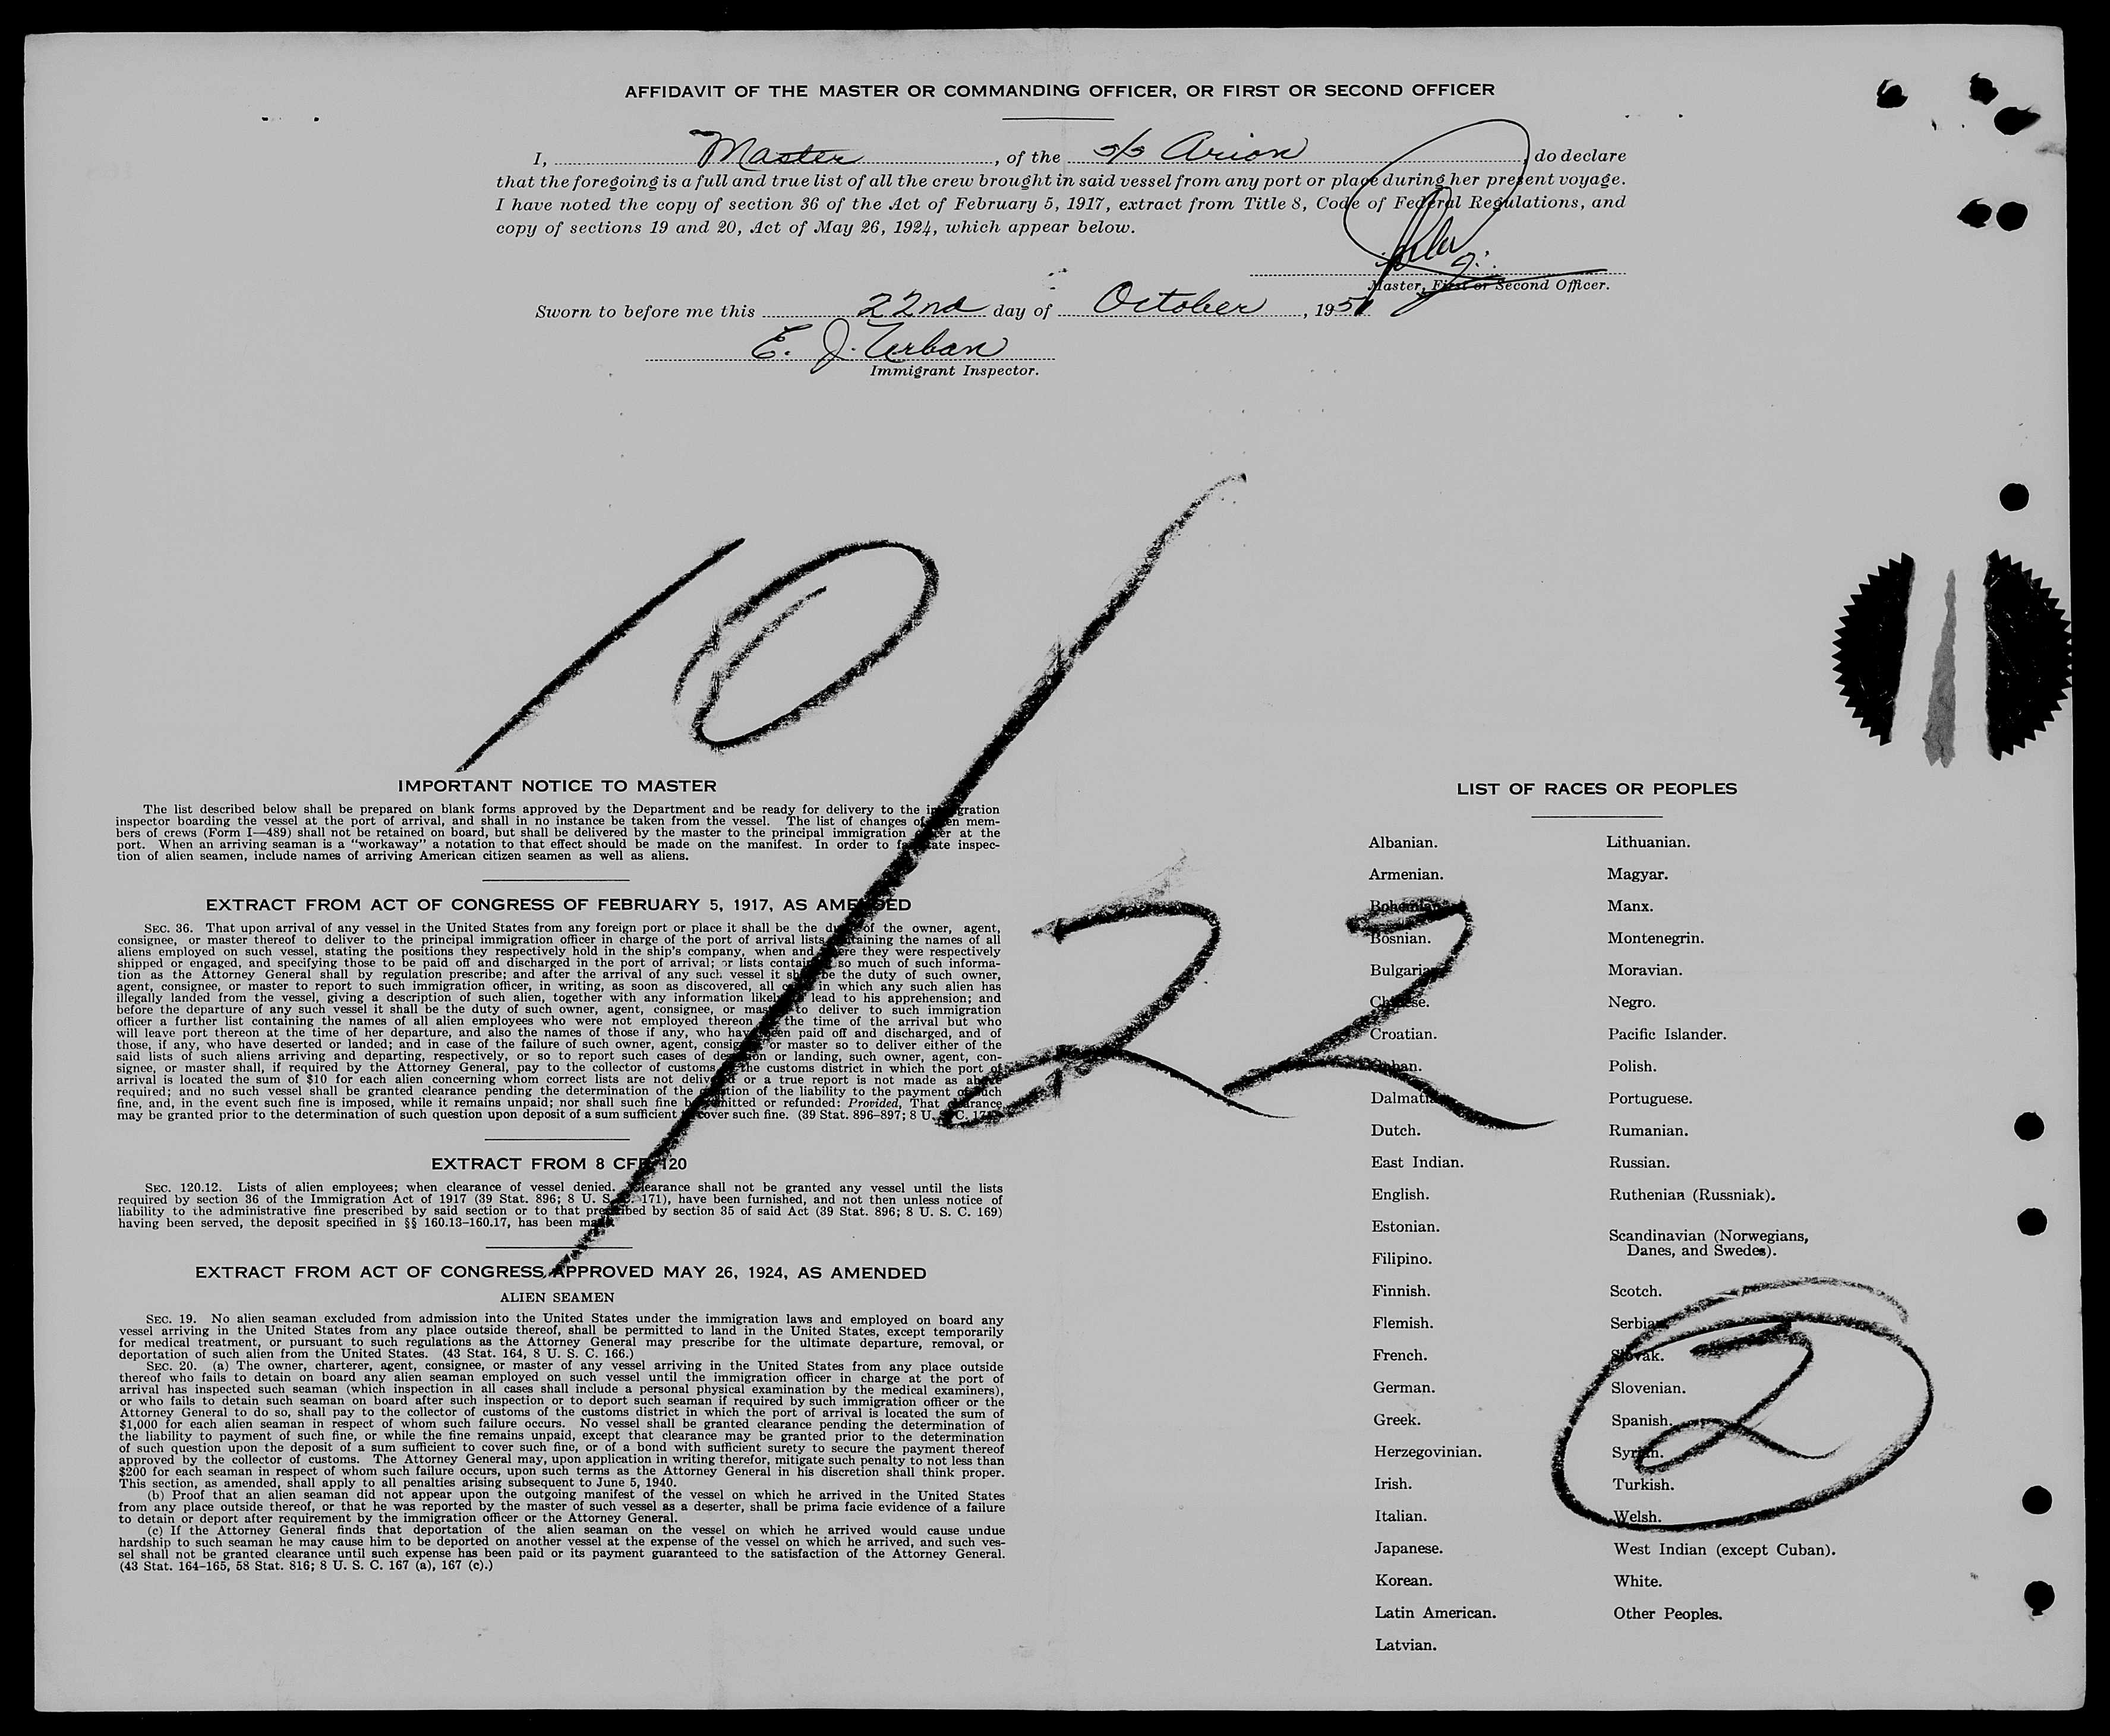 AFFIDAVIT OF THE MASTER OR COMMANDING OFFICER, OR FIRST OR SECOND OFFICER
I, Master, of the s/s Arion, do declare
that the foregoing is a full and true list of all the crew brought in said vessel from any port or place during her present voyage.
I have noted the copy of section 36 of the Act of February 5, 1917, extract from Title 8, Code of Federal Regulations, and
copy of sections 19 and 20, Act of May 26, 1924, which appear below.
Master, First or Second Officer.
Sworn to before me this 22nd day of October, 1951
E. J. Urban
Immigrant Inspector.
10/22
IMPORTANT NOTICE TO MASTER
The list described below shall be prepared on blank forms approved by the Department and be ready for delivery to the immigration
inspector boarding the vessel at the port of arrival, and shall in no instance be taken from the vessel. The list of changes of alien mem-
bers of crews (Form I—489) shall not be retained on board, but shall be delivered by the master to the principal immigration officer at the
port. When an arriving seaman is a "workaway" a notation to that effect should be made on the manifest. In order to facilitate inspec-
tion of alien seamen, include names of arriving American citizen seamen as well as aliens.
EXTRACT FROM ACT OF CONGRESS OF FEBRUARY 5, 1917, AS AMENDED
SEC. 36. That upon arrival of any vessel in the United States from any foreign port or place it shall be the duty of the owner, agent,
consignee, or master thereof to deliver to the principal immigration officer in charge of the port of arrival lists containing the names of all
aliens employed on such vessel, stating the positions they respectively hold in the ship's company, when and where they were respectively
shipped or engaged, and specifying those to be paid off and discharged in the port of arrival; or lists containing so much of such informa-
tion as the Attorney General shall by regulation prescribe; and after the arrival of any such vessel it shall be the duty of such owner,
agent, consignee, or master to report to such immigration officer, in writing, as soon as discovered, all cases in which any such alien has
illegally landed from the vessel, giving a description of such alien, together with any information likely to lead to his apprehension; and
before the departure of any such vessel it shall be the duty of such owner, agent, consignee, or master to deliver to such immigration
officer a further list containing the names of all alien employees who were not employed thereon at the time of the arrival but who
will leave port thereon at the time of her departure, and also the names of those if any, who have been paid off and discharged, and of
those, if any, who have deserted or landed; and in case of the failure of such owner, agent, consignee, or master so to deliver either of the
said lists of such aliens arriving and departing, respectively, or so to report such cases of desertion or landing, such owner, agent, con-
signee, or master shall, if required by the Attorney General, pay to the collector of customs of the customs district in which the port of
arrival is located the sum of $10 for each alien concerning whom correct lists are not delivered or a true report is not made as above
required; and no such vessel shall be granted clearance pending the determination of the question of the liability to the payment of such
fine, and, in the event such fine is imposed, while it remains unpaid; nor shall such fine be remitted or refunded: Provided, That clearance
may be granted prior to the determination of such question upon deposit of a sum sufficient to cover such fine. (39 Stat. 896–897; 8 U. S. C. 171.)
EXTRACT FROM 8 CFR 120
SEC. 120.12. Lists of alien employees; when clearance of vessel denied. Clearance shall not be granted any vessel until the lists
required by section 36 of the Immigration Act of 1917 (39 Stat. 896; 8 U. S. C. 171), have been furnished, and not then unless notice of
liability to the administrative fine prescribed by said section or to that prescribed by section 35 of said Act (39 Stat. 896; 8 U. S. C. 169)
having been served, the deposit specified in §§ 160.13–160.17, has been made.
EXTRACT FROM ACT OF CONGRESS, APPROVED MAY 26, 1924, AS AMENDED
ALIEN SEAMEN
SEC. 19. No alien seaman excluded from admission into the United States under the immigration laws and employed on board any
vessel arriving in the United States from any place outside thereof, shall be permitted to land in the United States, except temporarily
for medical treatment, or pursuant to such regulations as the Attorney General may prescribe for the ultimate departure, removal, or
deportation of such alien from the United States. (43 Stat. 164, 8 U. S. C. 166.)
SEC. 20. (a) The owner, charterer, agent, consignee, or master of any vessel arriving in the United States from any place outside
thereof who fails to detain on board any alien seaman employed on such vessel until the immigration officer in charge at the port of
arrival has inspected such seaman (which inspection in all cases shall include a personal physical examination by the medical examiners),
or who fails to detain such seaman on board after such inspection or to deport such seaman if required by such immigration officer or the
Attorney General to do so, shall pay to the collector of customs of the customs district in which the port of arrival is located the sum of
$1,000 for each alien seaman in respect of whom such failure occurs. No vessel shall be granted clearance pending the determination of
the liability to payment of such fine, or while the fine remains unpaid, except that clearance may be granted prior to the determination
of such question upon the deposit of a sum sufficient to cover such fine, or of a bond with sufficient surety to secure the payment thereof
approved by the collector of customs. The Attorney General may, upon application in writing therefor, mitigate such penalty to not less than
$200 for each seaman in respect of whom such failure occurs, upon such terms as the Attorney General in his discretion shall think proper.
This section, as amended, shall apply to all penalties arising subsequent to June 5, 1940.
(b) Proof that an alien seaman did not appear upon the outgoing manifest of the vessel on which he arrived in the United States
from any place outside thereof, or that he was reported by the master of such vessel as a deserter, shall be prima facie evidence of a failure
to detain or deport after requirement by the immigration officer or the Attorney General.
(c) If the Attorney General finds that deportation of the alien seaman on the vessel on which he arrived would cause undue
hardship to such seaman he may cause him to be deported on another vessel at the expense of the vessel on which he arrived, and such ves-
sel shall not be granted clearance until such expense has been paid or its payment guaranteed to the satisfaction of the Attorney General.
(43 Stat. 164–165, 58 Stat. 816; 8 U. S. C. 167 (a), 167 (c).)
LIST OF RACES OR PEOPLES
Albanian.
Armenian.
Bohemian.
Bosnian.
Bulgarian.
Chinese.
Croatian.
Cuban.
Dalmatian.
Dutch.
East Indian.
English.
Estonian.
Filipino.
Finnish.
Flemish.
French.
German.
Greek.
Herzegovinian.
Irish.
Italian.
Japanese.
Korean.
Latin American.
Latvian.
Lithuanian.
Magyar.
Manx.
Montenegrin.
Moravian.
Negro.
Pacific Islander.
Polish.
Portuguese.
Rumanian.
Russian.
Ruthenian (Russniak).
Scandinavian (Norwegians,
Danes, and Swedes).
Scotch.
Serbian.
Slovak.
Slovenian.
Spanish.
Syrian.
Turkish.
Welsh.
West Indian (except Cuban).
White.
Other Peoples.
2